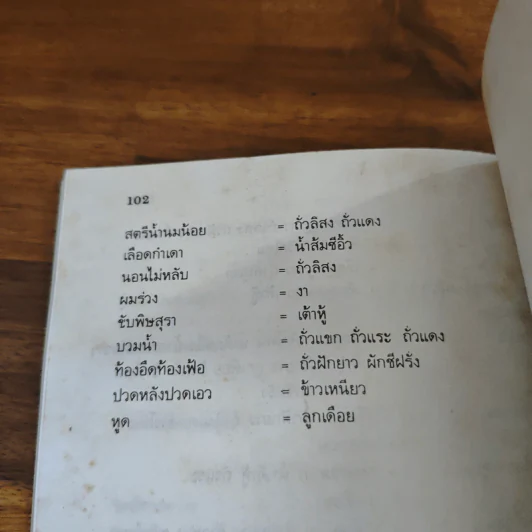 102
สตรีน้ำนมน้อย = ถั่วลิสง ถั่วแดง
เลือดกำเดา = น้ำส้มซีอิ้ว
นอนไม่หลับ = ถั่วลิสง
ผมร่วง = งา
ขับพิษสุรา = เต้าหู้
บวมน้ำ = ถั่วแขก ถั่วแระ ถั่วแดง
ท้องอืดท้องเฟ้อ = ถั่วฝักยาว ผักชีฝรั่ง
ปวดหลังปวดเอว = ข้าวเหนียว
หูด = ลูกเดือย